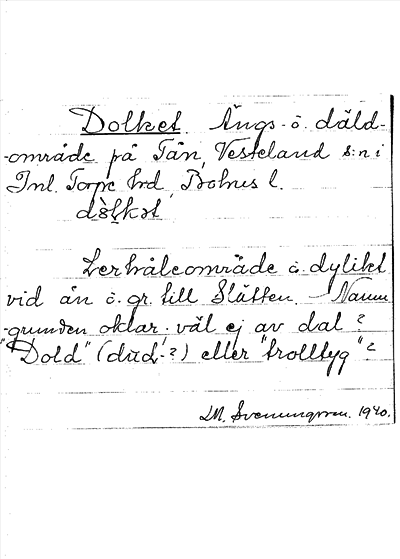 Dolket. Ängs- o. däld-
-område på Tån, Vesteland s:n i
Inl. Torpe hrd, Bohus l.
dòlkət
Lerhåleområde o. dylikt
vid ån o. gr. till Slätten. Namn
-grunden oklar: väl ej av dal?
"Dold" (dud-?) eller "trolltyg"?
LM. Svenungsson. 1940.